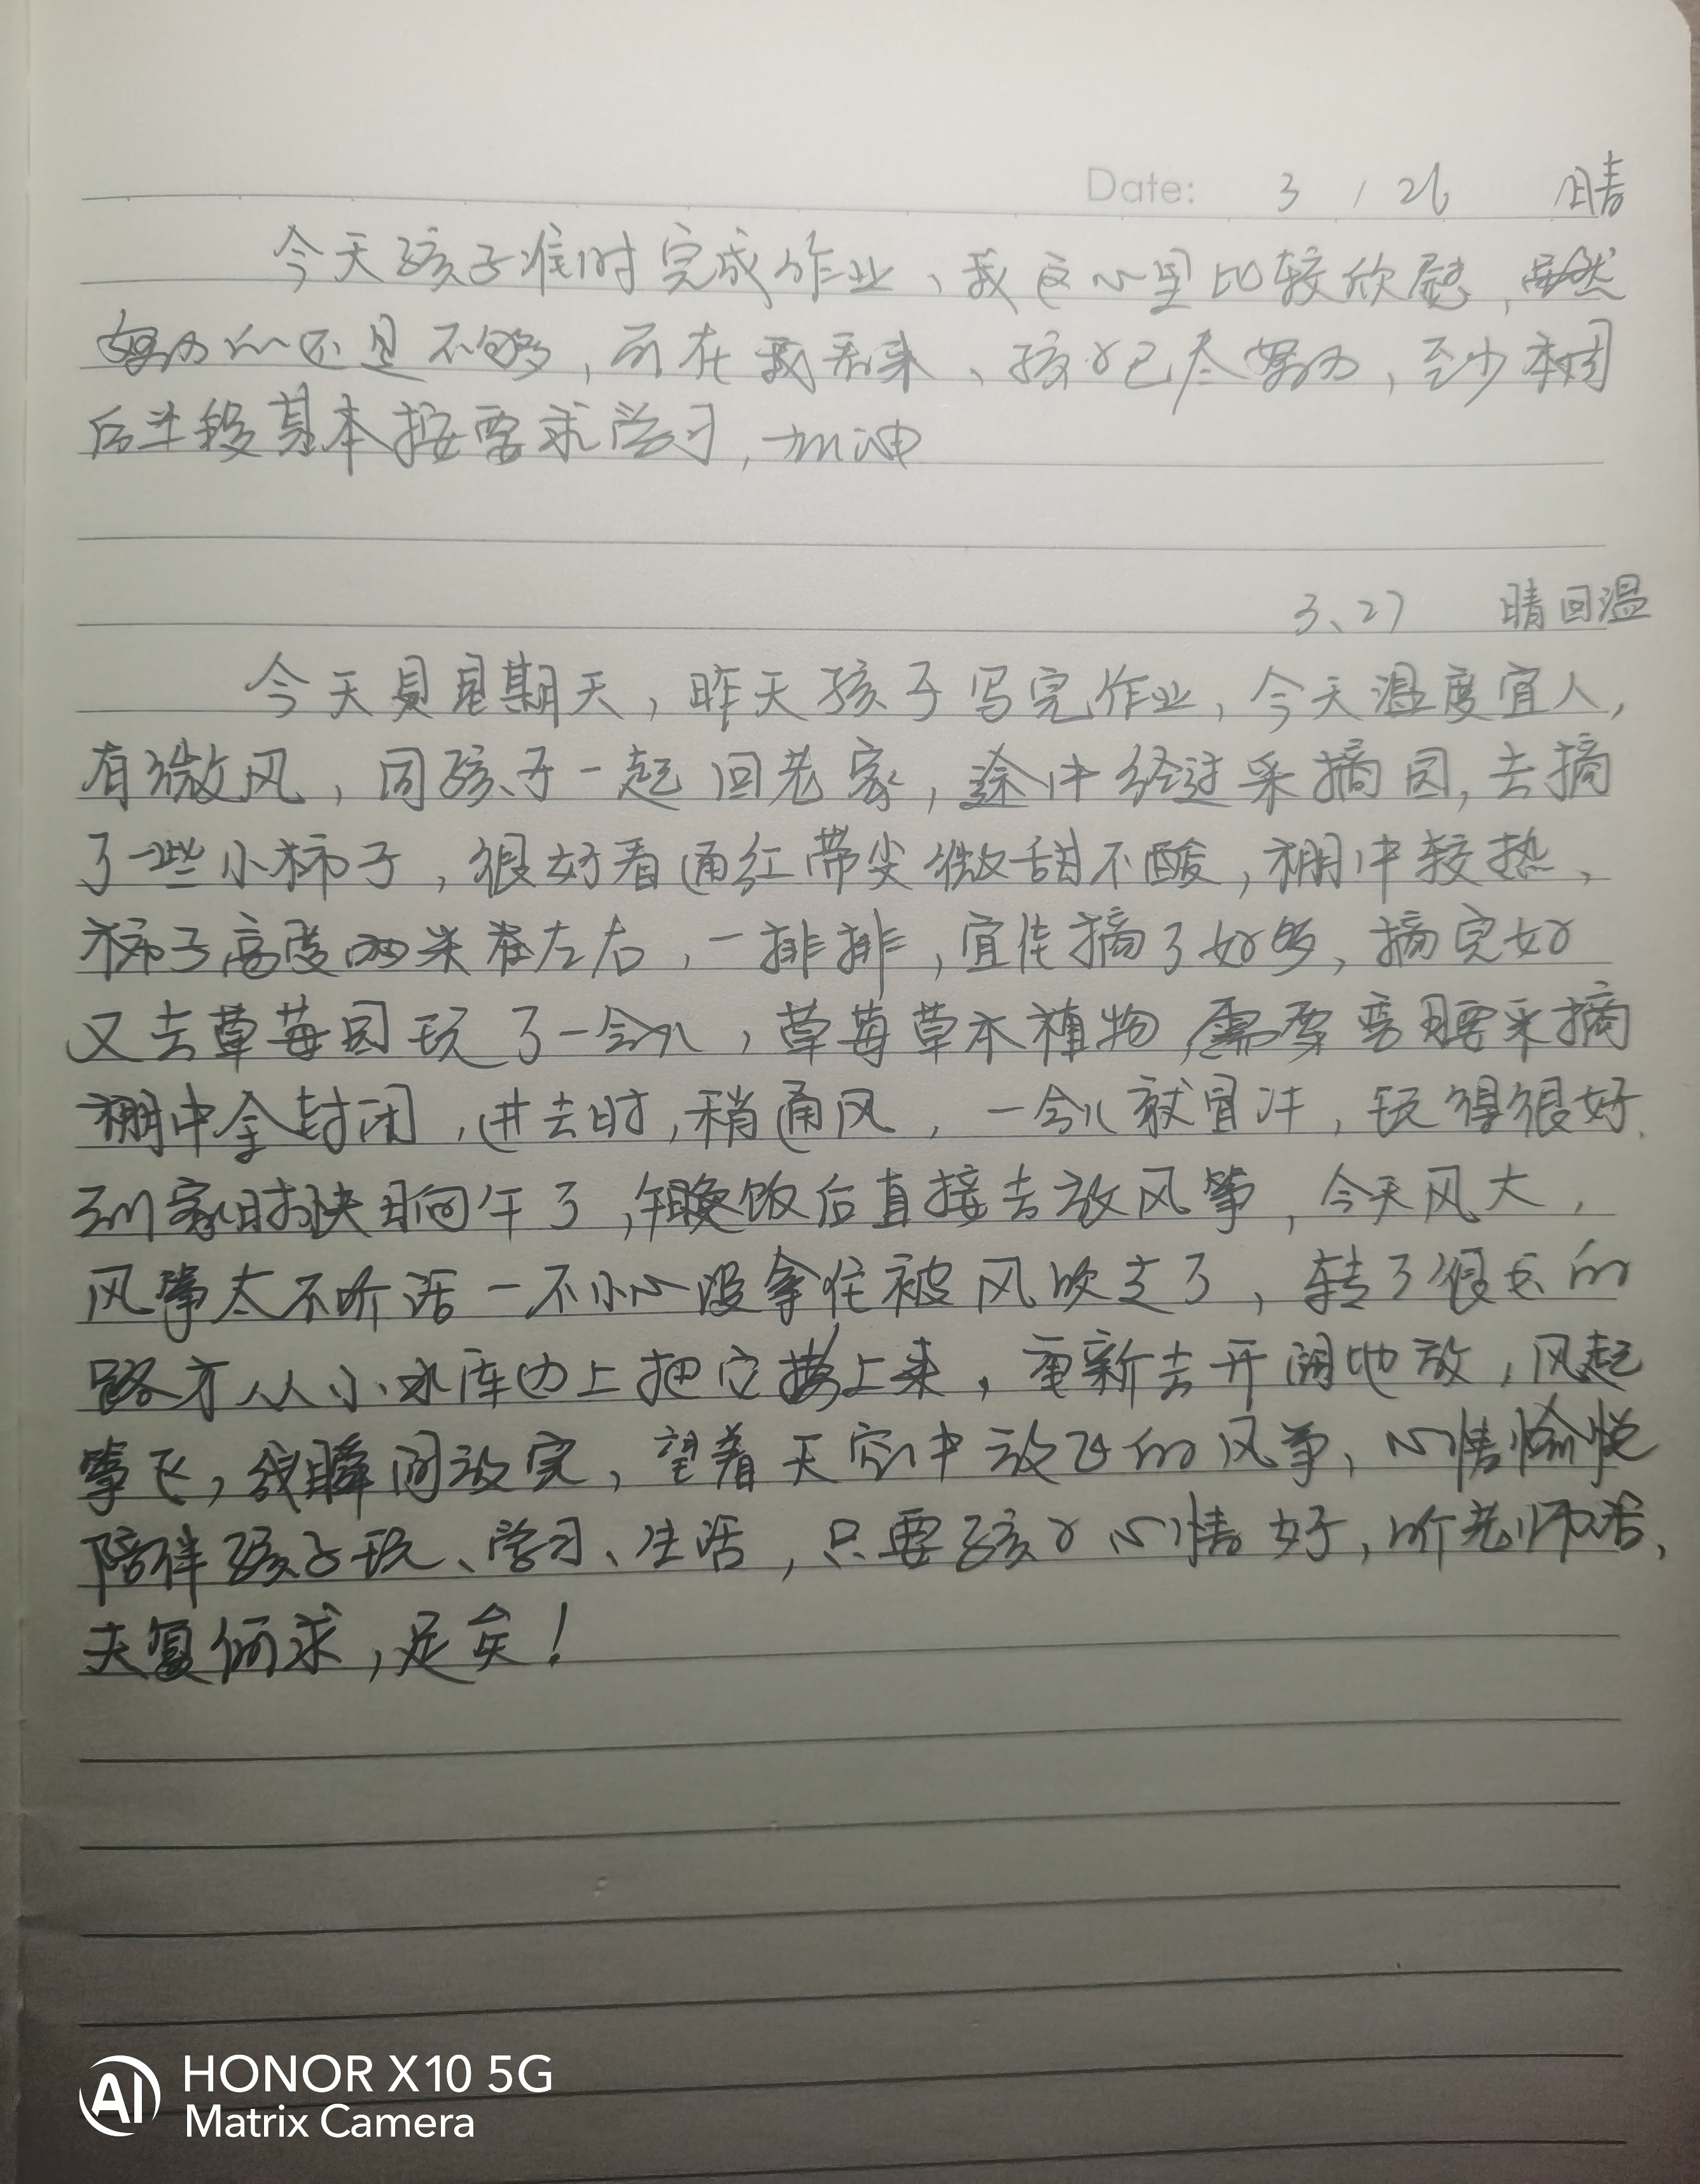 Date: 3 / 26 晴
今天孩子准时完成作业、我这心里比较欣慰，虽然
努力的还是不够，可在我看来、孩子已尽努力，至少本周
后半段基本按要求学习，加油
3、27 晴回温
今天是星期天，昨天孩子写完作业，今天温度宜人，
有微风，同孩子一起回老家，途中经过采摘园，去摘
了一些小柿子，很好看通红带尖微甜不酸，棚中较热、
柿子高度两米在左右，一排排，宜佳摘了好多，摘完好
又去草莓园玩了一会儿，草莓草本植物，需要弯腰采摘
棚中全封闭，进去时，稍通风，一会儿就冒汗，玩得很好.
到家时快晌午了，午饭后直接去放风筝，今天风大，
风筝太不听话一不小心没拿住被风吹走了，转了很长的
路才从小水库边上把它捞上来，重新去开阔地放，风起
筝飞，线瞬间放完，望着天空中放飞的风筝、心情愉悦
陪伴孩子玩、学习、生活，只要孩子心情好，听老师话、
夫复何求，足矣！
HONOR X10 5G
Matrix Camera
AI